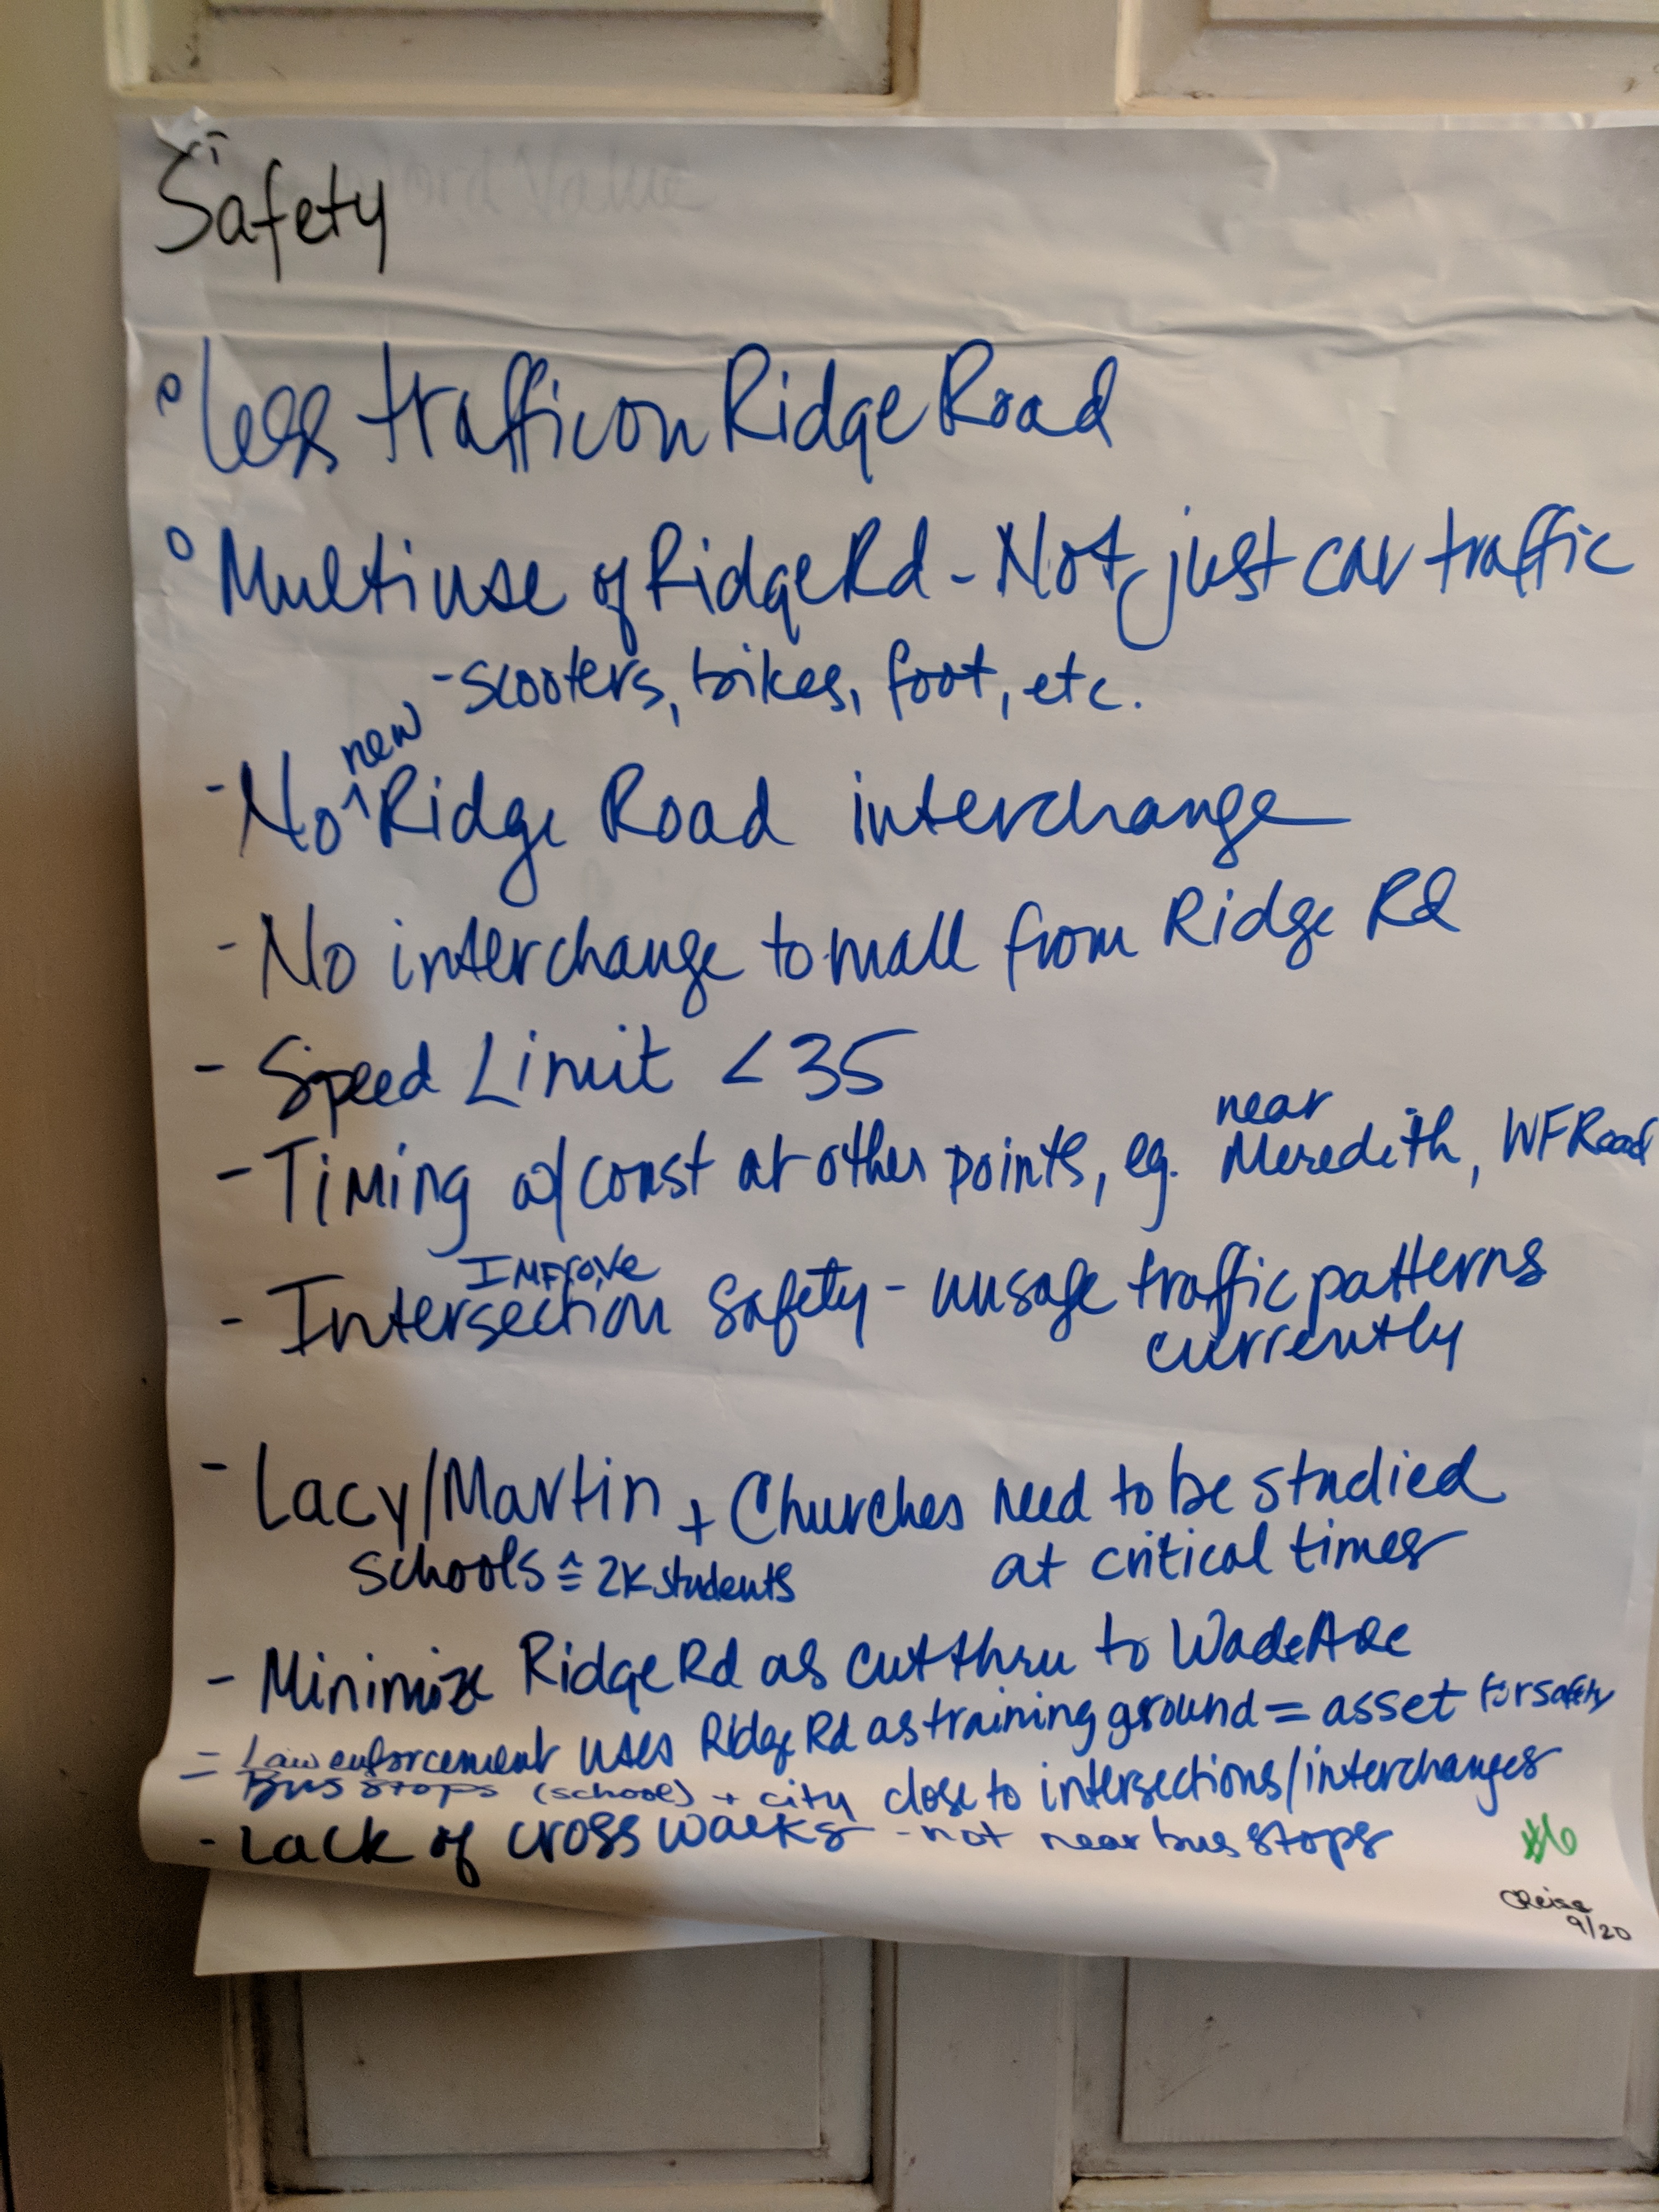 Safety
° less traffic on Ridge Road
° Multiuse of Ridge Rd - Not just car traffic
- scooters, bikes, foot, etc.
new
- No ^ Ridge Road interchange
- No interchange to mall from Ridge Rd
- Speed Limit < 35
near
- Timing w/const at other points, eg. Meredith, WF Road
Improve
- Intersection Safety - unsafe traffic patterns
currently
- Lacy/Martin + Churches need to be studied
schools ≙ 2K students at critical times
- Minimize Ridge Rd as cut thru to Wade Ave
- Law enforcement uses Ridge Rd as training ground = asset for safety
- Bus stops (school) + city close to intersections/interchanges
- Lack of cross walks - not near bus stops
9/20